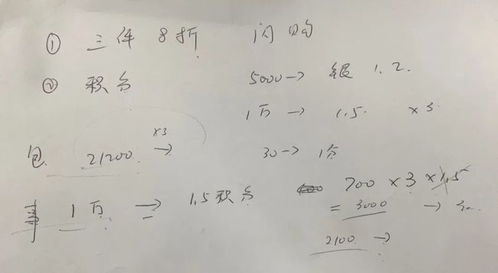 ① 三件 8折 闪购
② 积分
5000→ 银 1.2.
1万 → 1.5. ×3
30→ 1分
包 21200 ×3 →
事 1万 → 1.5积分
700 ×3 ×1.5
= 3000 →
2100 →